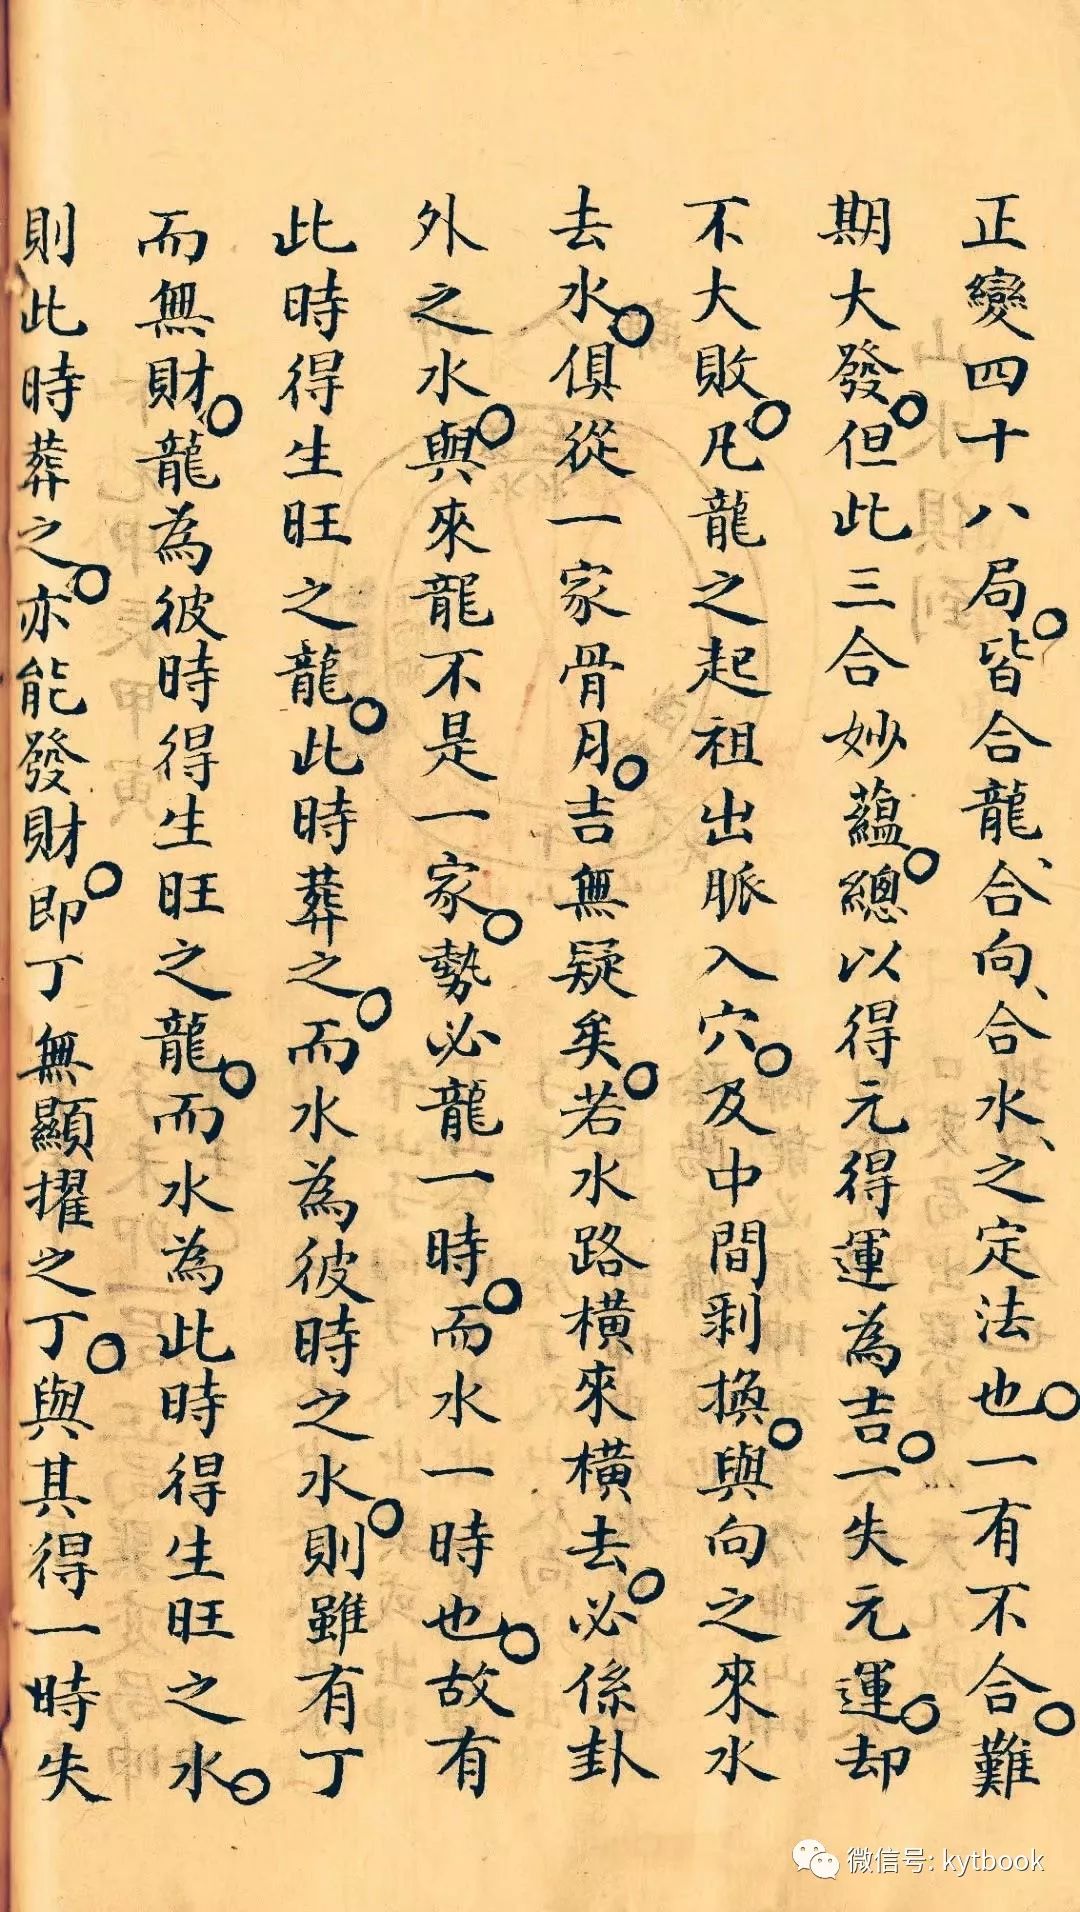 正變四十八局。皆合龍、合向、合水、之定法也。一有不合。難
期大發。但此三合妙蘊。總以得元得運為吉。一失元運。却
不大敗。凡龍之起祖出脈入穴。及中間剥換。與向之來水
去水。俱從一家骨月。吉無疑矣。若水路橫來橫去。必係卦
外之水。與來龍不是一家。勢必龍一時。而水一時也。故有
此時得生旺之龍。此時葬之。而水為彼時之水。則雖有丁
而無財。龍為彼時得生旺之龍。而水為此時得生旺之水。
則此時葬之。亦能發財。即丁無顯擢之丁。與其得一時失
微信号: kytbook